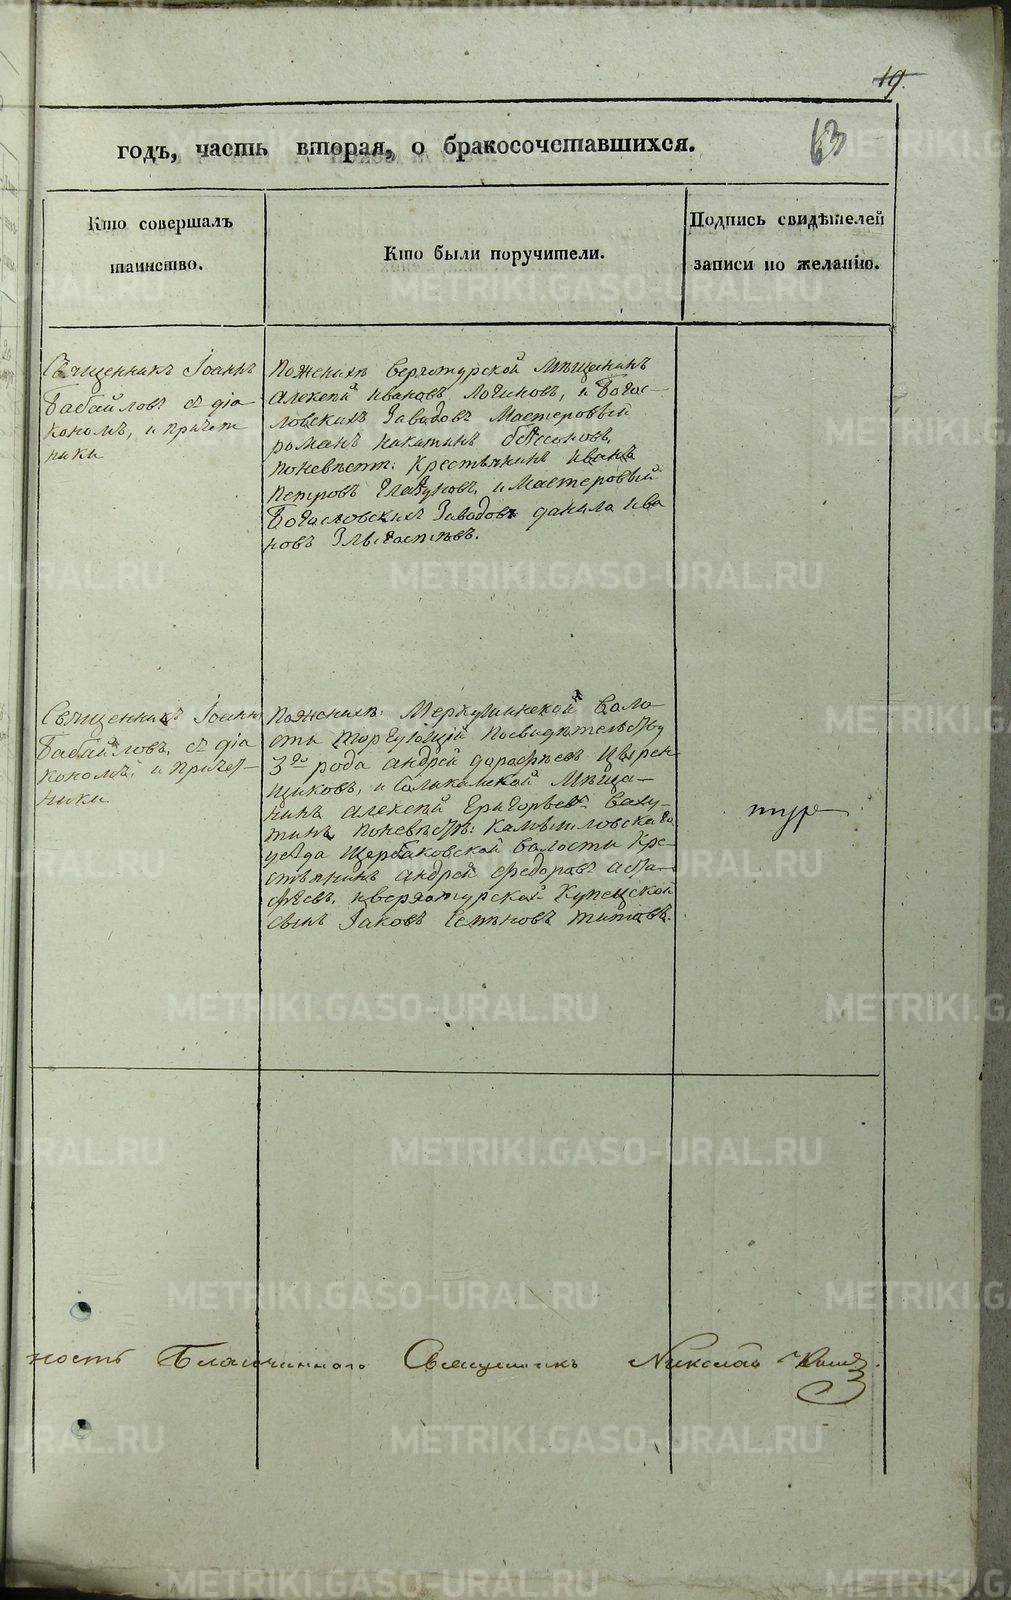 19.
63
годъ, часть вторая, о бракосочетавшихся.
Кто совершалъ
таинство.
Кто были поручители.
Подпись свидѣтелей
записи по желанію.
Священникъ Іоаннъ
Бабайловъ съ діа
кономъ, и причет
ники
Пожених Верхотурской Мѣщанинъ
Алексей Ивановъ Логиновъ, и Богос-
ловскихъ Заводовъ Мастеровый
романъ никитинъ
Поневѣсте: Крестьянинъ Иванъ
Петровъ и Мастеровый
Богословскихъ Заводовъ данила ива
новъ
Священникъ Іоаннъ
Бабайловъ, съ діа
кономъ, и причет-
ники
Поженихѣ: Меркушинской Воло
сти торгующій Посвидѣтельству
3го рода андрей дорофѣевъ Цырен
щиковъ, и Соликамской Мѣща-
нинъ Алексѣй Григорьевъ Ваку-
тинъ Поневѣстѣ: Камышловскаго
уезда Щербаковской Волости Кре-
стьянинъ андрей Федоровъ
иверхотурской Купецской
сынъ Іаковъ Титовъ.
ность Благочиннаго Священникъ Николай
METRIKI.GASO-URAL.RU